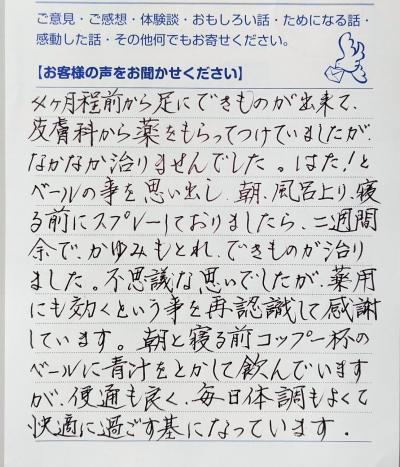 ご意見・ご感想・体験談・おもしろい話・ためになる話・
感動した話・その他何でもお寄せください。
【お客様の声をお聞かせください】
4ヶ月程前から足にできものが出来て、
皮膚科から薬をもらってつけていましたが、
なかなか治りませんでした。はた!と
ベールの事を思い出し、朝、風呂上り、寝
る前にスプレーしておりましたら、二週間
余で、かゆみもとれ、できものが治り
ました。不思議な思いでしたが、薬用
にも効くという事を再認識して感謝
しています。朝と寝る前コップ一杯の
ベールに青汁をとかして飲んでいます
が、便通も良く、毎日体調もよくて
快適に過ごす基になっています.